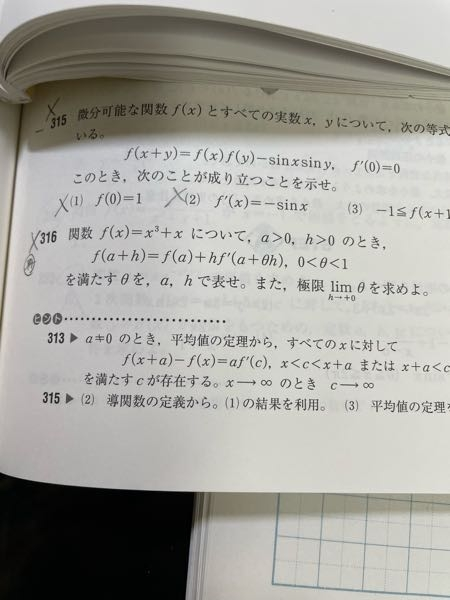 315 微分可能な関数 f(x) とすべての実数 x, y について,次の等式
いる。
f(x+y)=f(x)f(y)-sinxsiny, f'(0)=0
このとき,次のことが成り立つことを示せ。
(1) f(0)=1 (2) f'(x)=-sinx (3) -1≦f(x+1
316 関数 f(x)=x³+x について,a>0, h>0 のとき,
f(a+h)=f(a)+hf'(a+θh), 0<θ<1
を満たす θ を,a, h で表せ。また,極限 lim θ を求めよ。
h→+0
ヒント
313 ▶ a≠0 のとき,平均値の定理から,すべての x に対して
f(x+a)-f(x)=af'(c), x<c<x+a または x+a<c
を満たす c が存在する。x→∞ のとき c→∞
315 ▶ (2) 導関数の定義から。(1)の結果を利用。 (3) 平均値の定理を